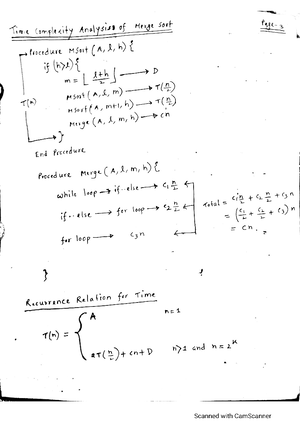 Time Complexity Analysis of Merge Sort
Page-3
Procedure MSort (A, l, h) {
if (h>l) {
m = ⌊ (l+h)/2 ⌋ → D
MSort (A, l, m) → T(n/2)
MSort (A, m+1, h) → T(n/2)
Merge (A, l, m, h) → cn
T(n)
}
End Procedure
Procedure Merge (A, l, m, h) {
while loop → if..else → c₁ n/2
if..else → for loop → c₂ n/2
for loop → c₃n
Total = c₁n/2 + c₂ n/2 + c₃n
= (c₁/2 + c₂/2 + c₃) n
= cn.
}
Recurrence Relation for Time
T(n) = {
A n=1
2T(n/2) + cn + D n>1 and n = 2ᵏ
Scanned with CamScanner